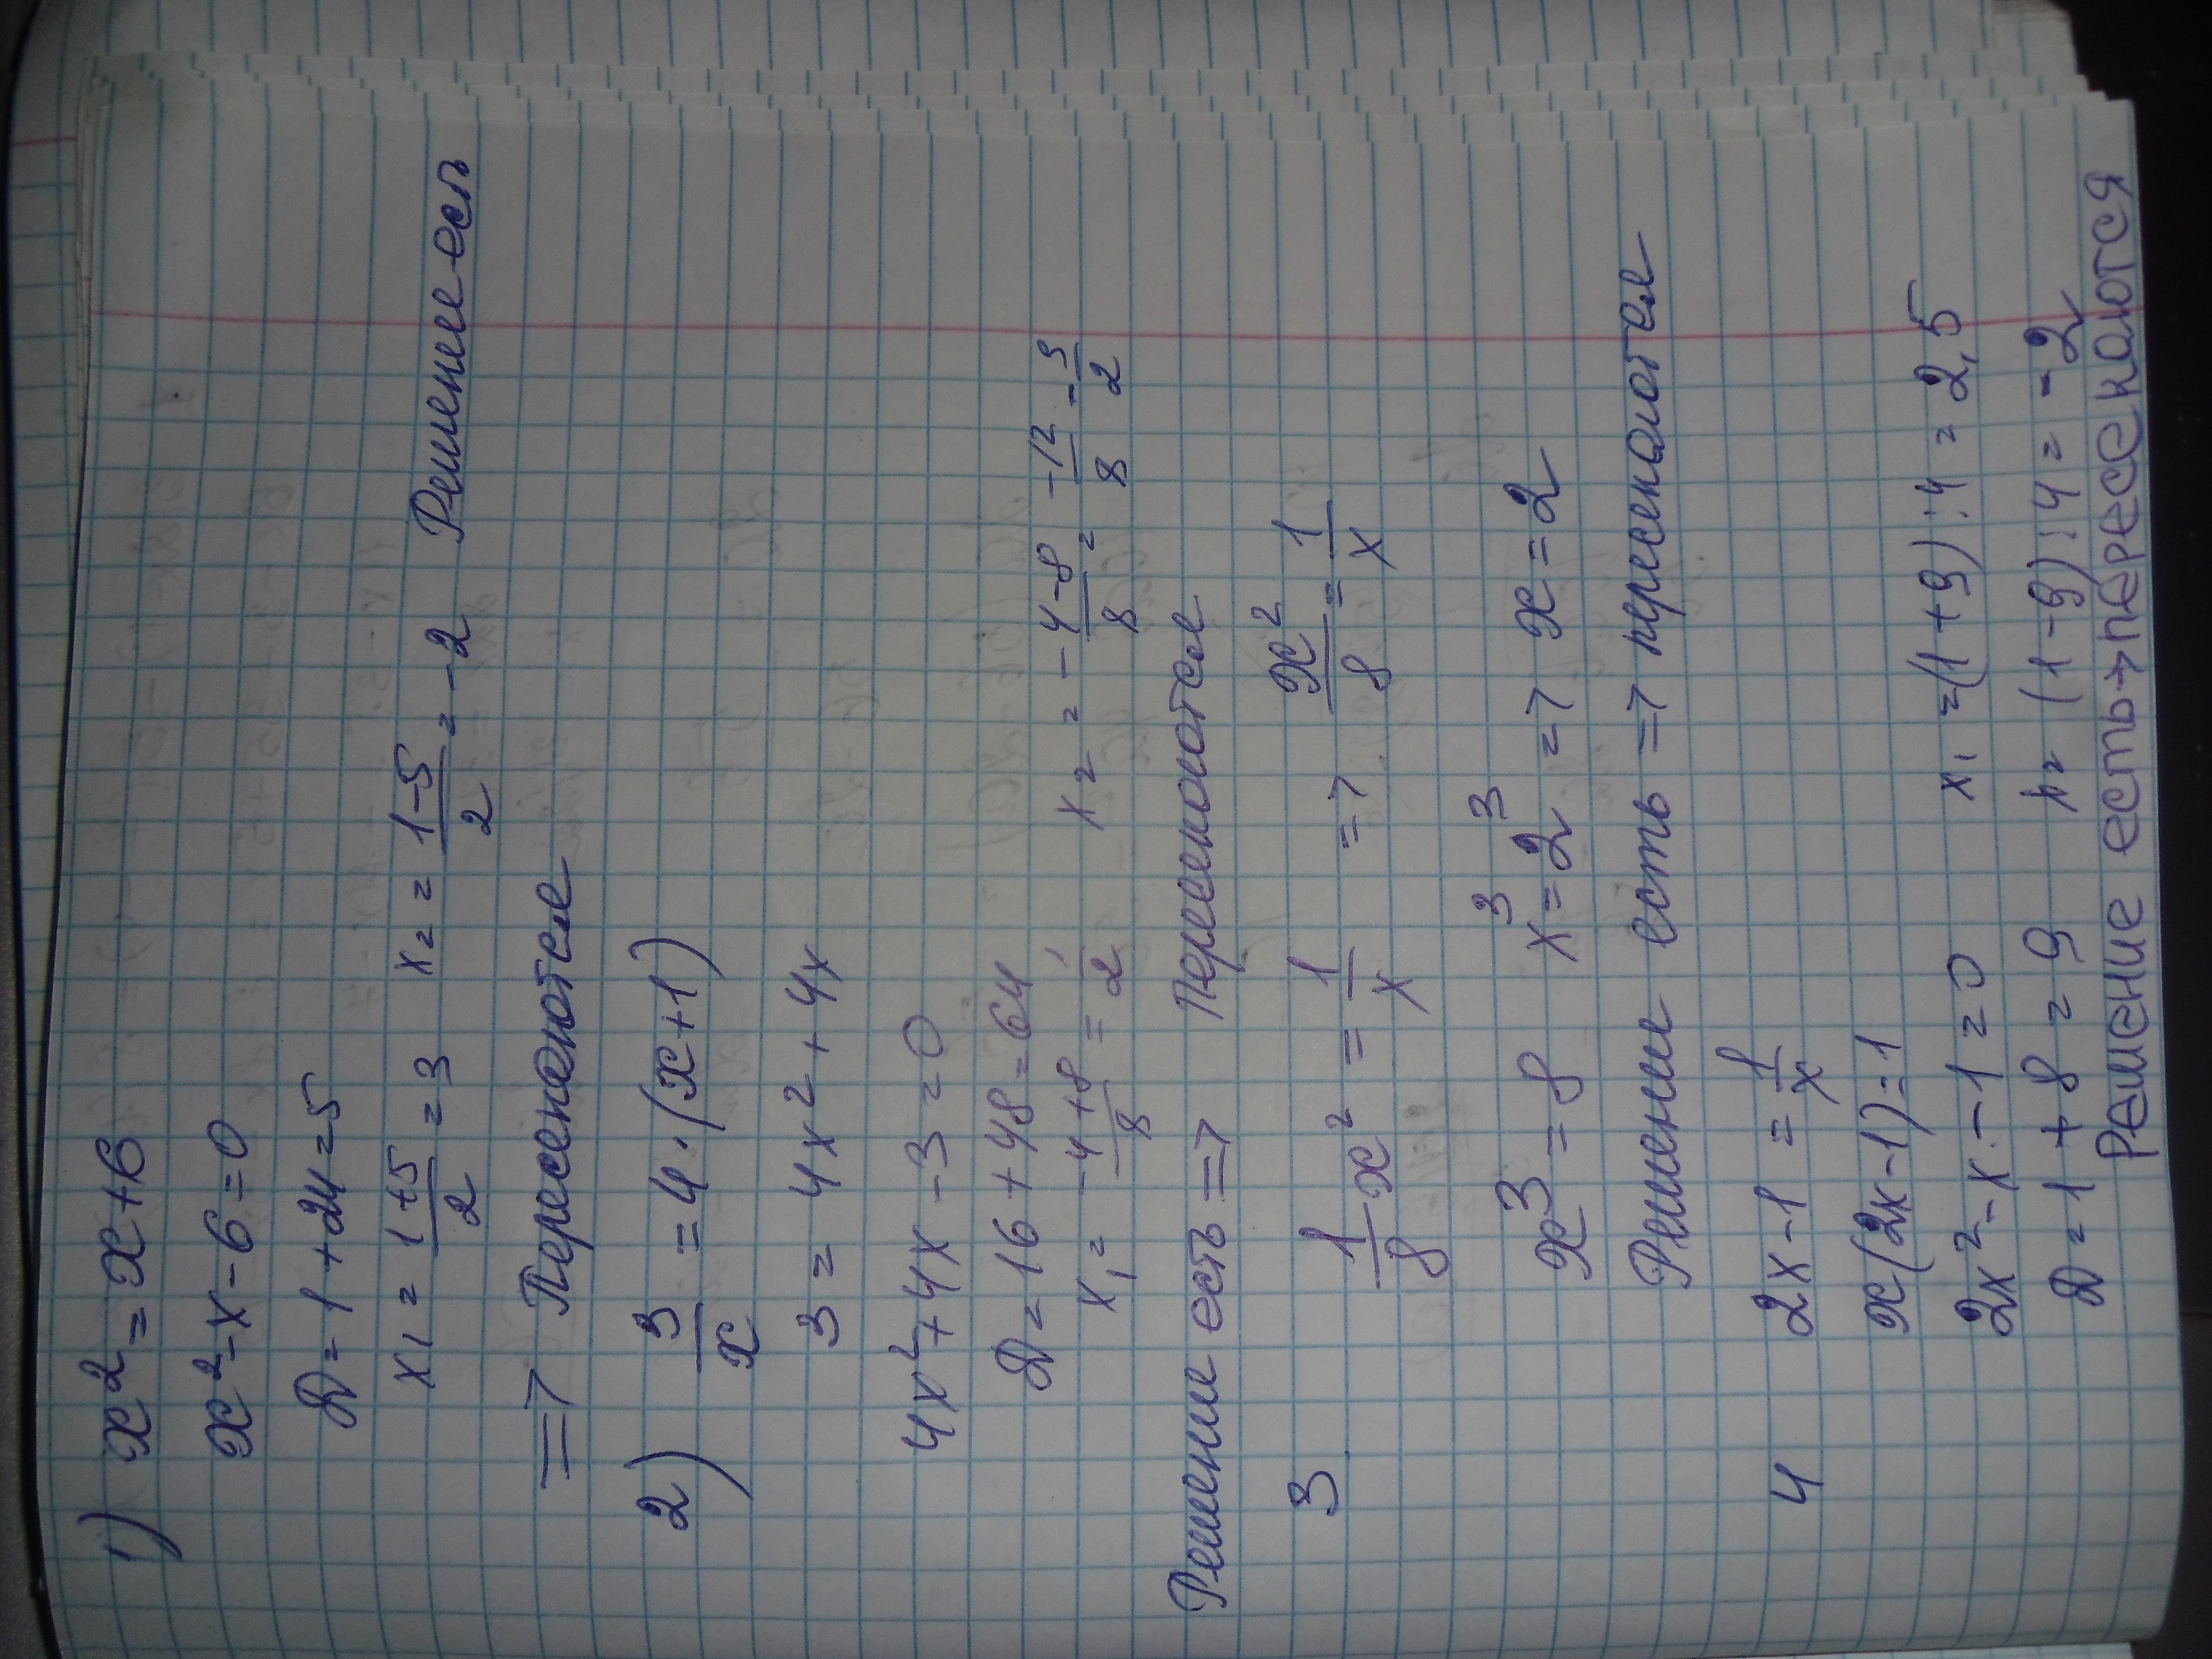 1) x² = x + 6
x² - x - 6 = 0
D = 1 + 24 = 5
x₁ = (1+5)/2 = 3   x₂ = (1-5)/2 = -2   Решение есть
=> Пересекаются
2) 3/x = 4·(x+1)
3 = 4x² + 4x
4x² + 4x - 3 = 0
D = 16 + 48 = 64
x₁ = (-4+8)/8 = 1/2   x₂ = (-4-8)/8 = -12/8 - 3/2
Решение есть => Пересекаются
3 1/8 x² = 1/x => x²/8 = 1/x
x³ = 8   x³ = 2³ => x = 2
Решение есть => пересекаются
4 2x - 1 = 1/x
x(2x-1) = 1
2x² - x - 1 = 0   x₁ = (1+9):4 = 2,5
D = 1 + 8 = 9   (1-9):4 = -2
Решение есть → пересекаются